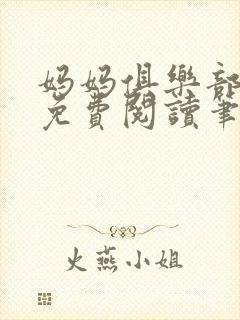 妈妈俱樂部
免費閱讀筆
火燕小姐